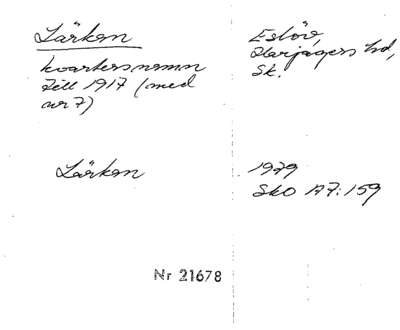 Lärkan
kvartersnamn
till 1917 (med
nr 7)
Eslöv,
Harjagers hd,
Sk.
Lärkan
1979
SkO 17:159
Nr 21678